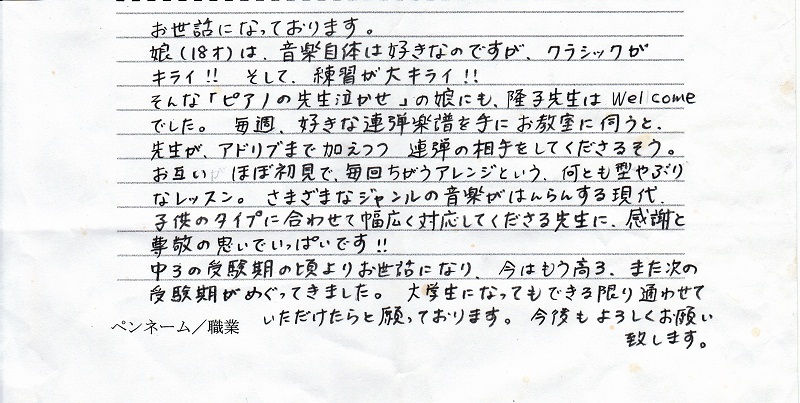 お世話になっております。
娘(18才)は、音楽自体は好きなのですが、クラシックが
キライ!! そして、練習が大キライ!!
そんな「ピアノの先生泣かせ」の娘にも、隆子先生は Welcome
でした。 毎週、好きな連弾楽譜を手にお教室に伺うと、
先生が、アドリブまで加えつつ 連弾の相手をしてくださるそう。
お互い ほぼ初見で、毎回ちがうアレンジという、何とも型やぶり
なレッスン。 さまざまなジャンルの音楽がはんらんする現代、
子供のタイプに合わせて幅広く対応してくださる先生に、感謝と
尊敬の思いでいっぱいです!!
中3の受験期の頃よりお世話になり、今はもう高3、また次の
受験期がめぐってきました。 大学生になってもできる限り通わせて
いただけたらと願っております。 今後もよろしくお願い
致します。
ペンネーム/職業